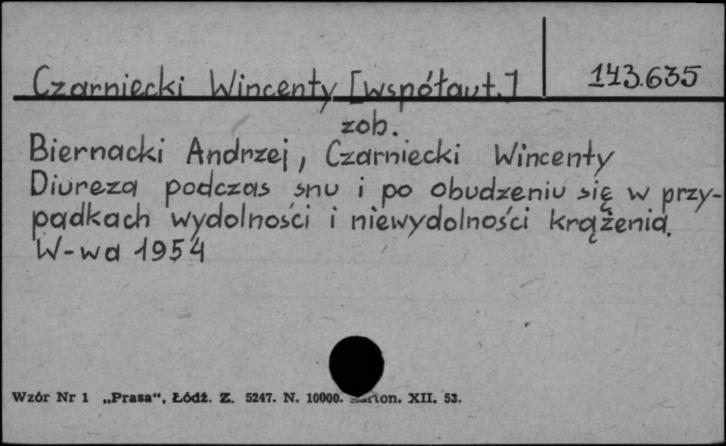 Czarniecki Wincenty [współaut.]
143.635
zob.
Biernacki Andrzej, Czarniecki Wincenty
Diureza podczas snu i po obudzeniu się w przy-
padkach wydolności i niewydolności krążenia.
W-wa 1954
Wzór Nr 1 „Prasa“, Łódź. Z. 5247. N. 10000. XII. 53.